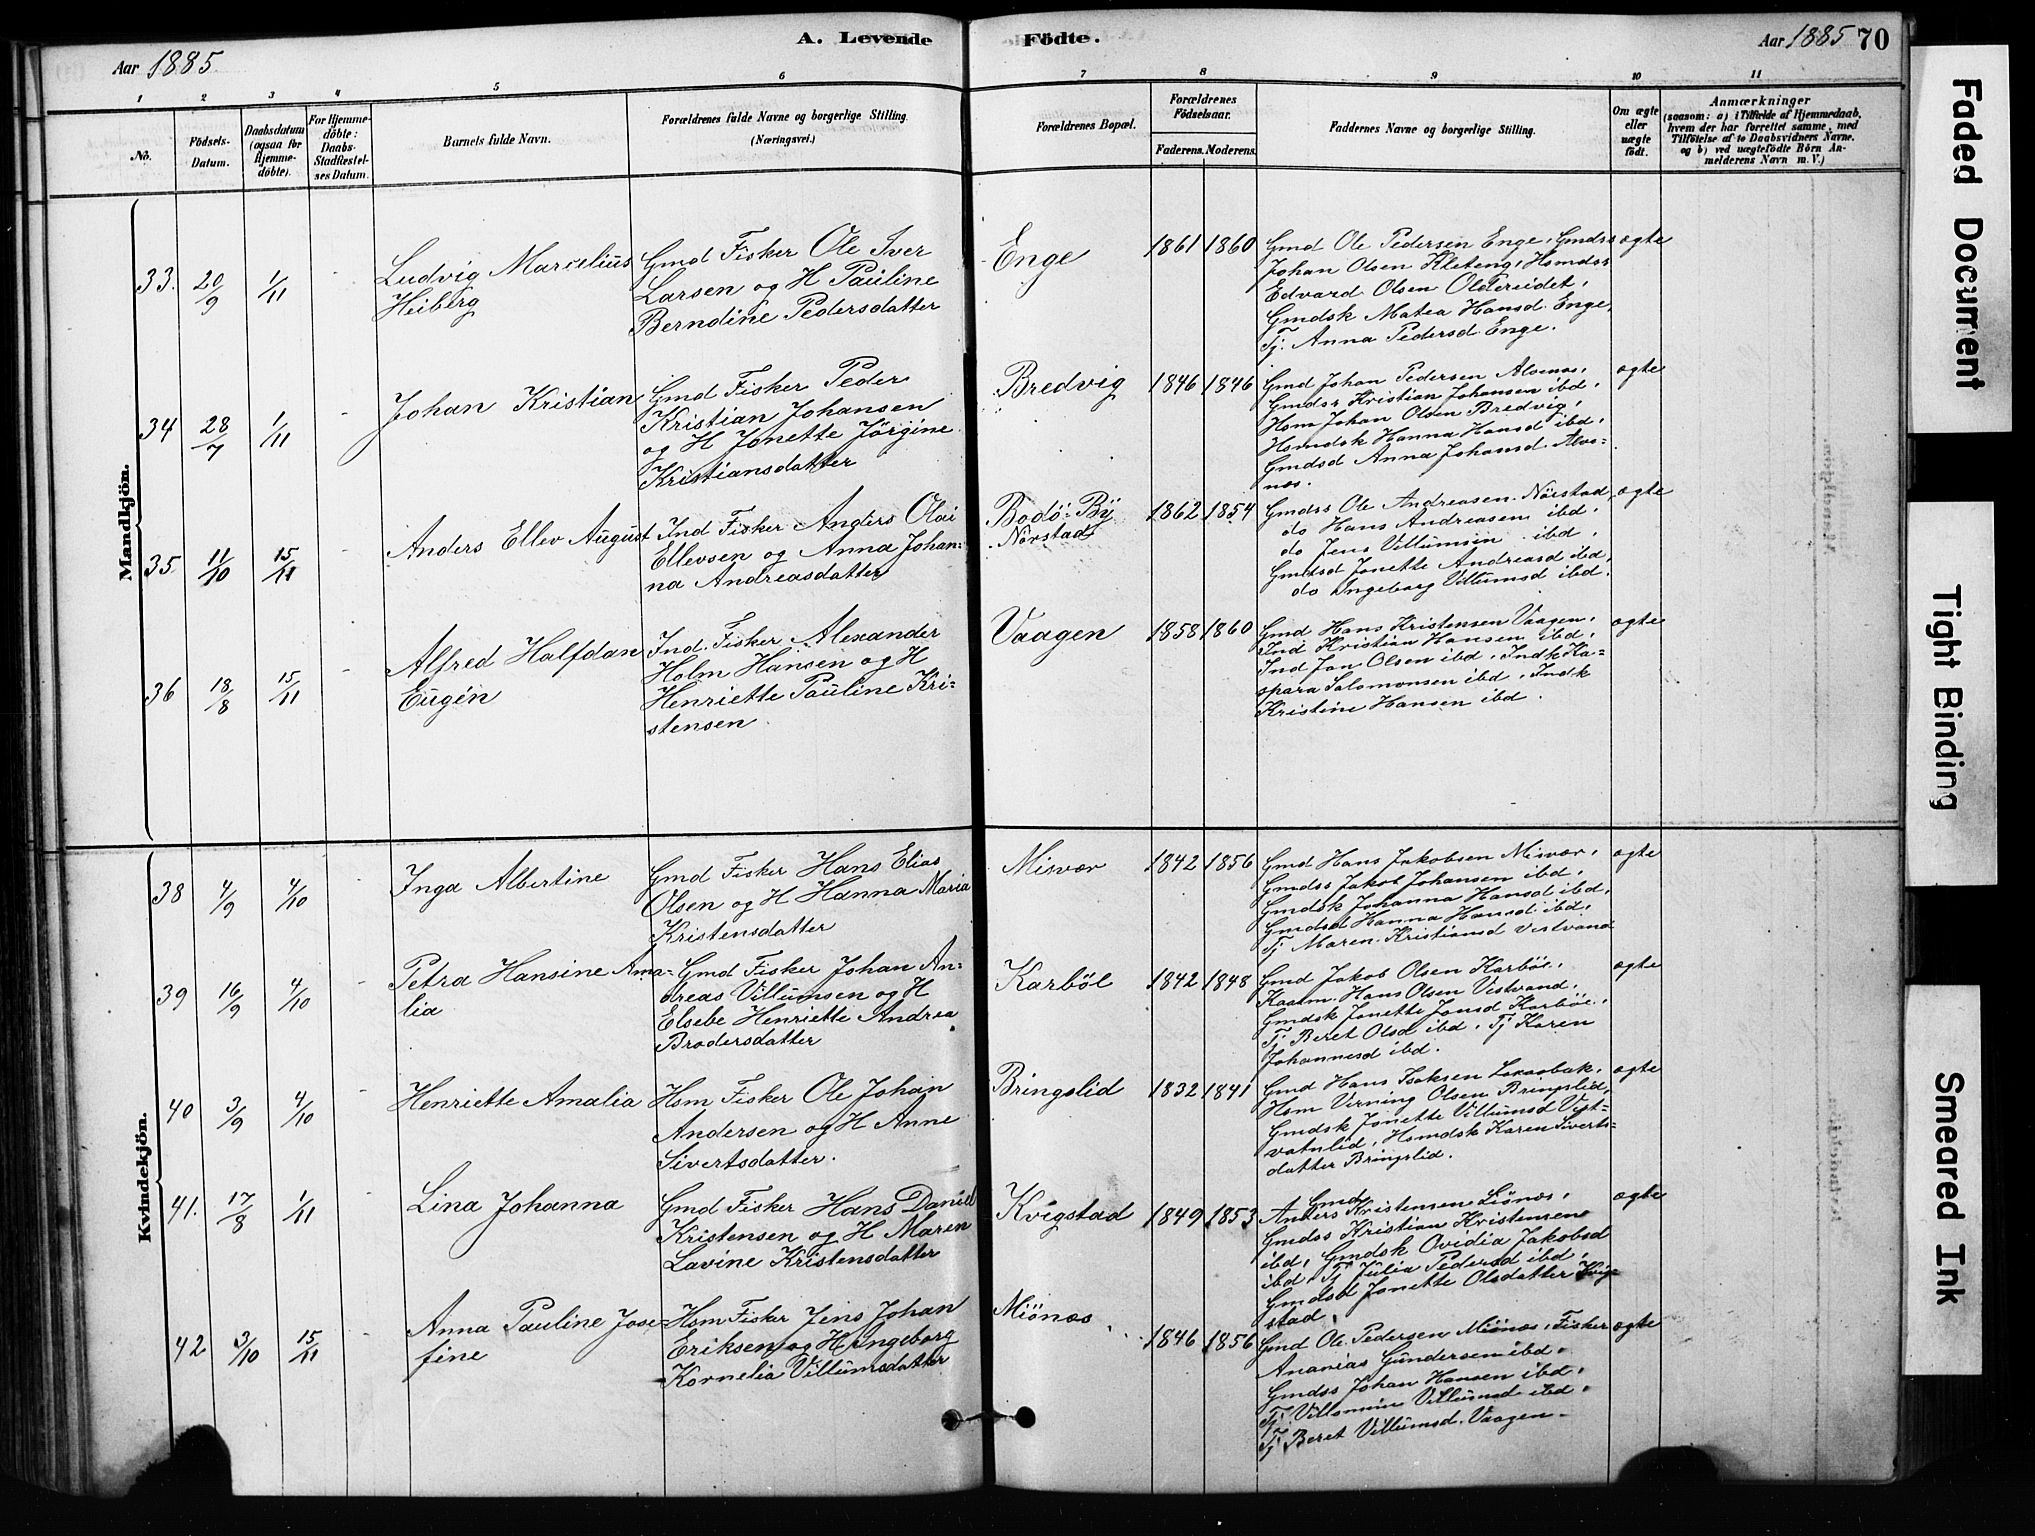 Aar 1885
A. Levende
Födte.
Aar 1885 70
1 2 3 4 5 6 7 8 9 10 11
No.
Födsels-Datum.
Daabsdatum (ogsaa for Hjemme-döbte).
For Hjemme-döbte: Daabs-Stadfæstel-ses Datum.
Barnets fulde Navn.
Forældrenes fulde Navne og borgerlige Stilling. (Næringsvei.)
Forældrenes Bopæl.
Forældrenes Födselsaar.
Faderens. Moderens.
Faddernes Navne og borgerlige Stilling.
Om ægte eller uægte födt.
Anmærkninger
(saasom: a) i Tilfælde af Hjemmedaab, hvem der har forrettet samme, med Tilföielse af to Daabsvidners Navne. og b) ved uægtefödte Börn An-melderens Navn m. V.)
Mandkjön.
33. 20/9 1/11 -
Ludvig Marselius
Heiberg
Gmd Fisker Ole Iver
Larsen og H Pauline
Berndine Pedersdatter
Enge
1861 1860
Gmd Ole Pedersen Enge, Gmdss
Johan Olsen Kleteng, Hsmdss
Edvard Olsen Oldereidet,
Gmdsk Matea Hansd. Enge,
Tj. Anna Pedersd. Enge.
ægte
34 28/7 1/11 -
Johan Kristian
Gmd Fisker Peder
Kristian Johansen
og H Jonette Jörgine
Kristiansdatter
Bredvig
1846 1846
Gmd Johan Pedersen Alvnæs,
Gmdss Kristian Johansen ibd,
Hsm Johan Olsen Bredvig,
Hsmdsk Hanna Hansd ibd,
Gmdsd Anna Johansd. Alvs=
næs.
ægte
35. 11/10 15/11 -
Anders Ellev August
Ind Fisker Anders Olai
Ellevsen og Anna Johan=
na Andreasdatter
Bodö By
Nörstad
1862 1854
Gmdss Ole Andreasen Nörstad,
do Hans Andreasen ibd,
do Jens Villumsen ibd,
Gmdsd Jonette Andreasd ibd,
do Ingeborg Villumsd ibd.
ægte
36 18/8 15/11 -
Alfred Halfdan
Eugén
Ind. Fisker Alexander
Holm Hansen og H
Henriette Pauline Kri=
stensen.
Vaagen
1858 1860
Gmd Hans Kristensen Vaagen,
Ind Kristian Hansen ibd,
Ind Jon Olsen ibd, Indk Ka=
spara Salomonsen ibd, Indk
Kristine Hansen ibd.
ægte
Kvindekjön.
38 4/9 4/10 -
Inga Albertine
Gmd Fisker Hans Elias
Olsen og H Hanna Maria
Kristensdatter
Misvær
1842 1856
Gmd Hans Jakobsen Misvær,
Gmdss Jakob Johansen ibd,
Gmdsk Johanna Hansd ibd,
Gmdsd Hanna Hansd ibd,
Tj Maren Kristiansd Vestvand
ægte
39 16/9 4/10 -
Petra Hansine Ama=
lia
Gmd Fisker Johan An=
dreas Villumsen og H
Elsebe Henriette Andrea
Brodersdatter
Karböl
1842 1848
Gmd Jakob Olsen Karböl,
Kaarm. Hans Olsen Vestvand,
Gmdsk Jonette Jonsd Karböl,
Tj Beret Olsd ibd, Tj Karen
Johannesd ibd.
ægte
40 3/9 4/10 -
Henriette Amalia
Hsm Fisker Ole Johan
Andersen og H Anne
Sivertsdatter.
Bringslid
1832 1841
Gmd Hans Isaksen
Hsm Verning Olsen Bringslid,
Gmdsk Jonette Villumsd Vest=
vatnlid, Hsmdsk Karen Siverts=
datter Bringslid.
ægte
41. 17/8 1/11 -
Lina Johanna
Gmd Fisker Hans Daniel
Kristensen og H Maren
Lavine Kristensdatter
Kvigstad
1849 1853
Gmd
Anders Kristensen Lisnæs,
Gmdss Kristian Kristensen
ibd, Gmdsk Ovidia Jakobsd
ibd, Tj Julia Pedersd ibd,
Gmdsd Jonette Olsdatter Kvig
stad.
ægte
42 3/10 15/11
Anna Pauline Jose=
fine
Hsm Fisker Jens Johan
Eriksen og H Ingeborg
Kornelia Villumsdatter
Miönæs
1846 1856
Gmd Ole Pedersen Miönæs, Fisker
Ananias Gundersen ibd,
Gmdss Johan Hansen ibd,
Tj. Villumine Villumsd ibd,
Tj Beret Villumsd. Vaagen
ægte
Faded Document
Tight Binding
Smeared Ink